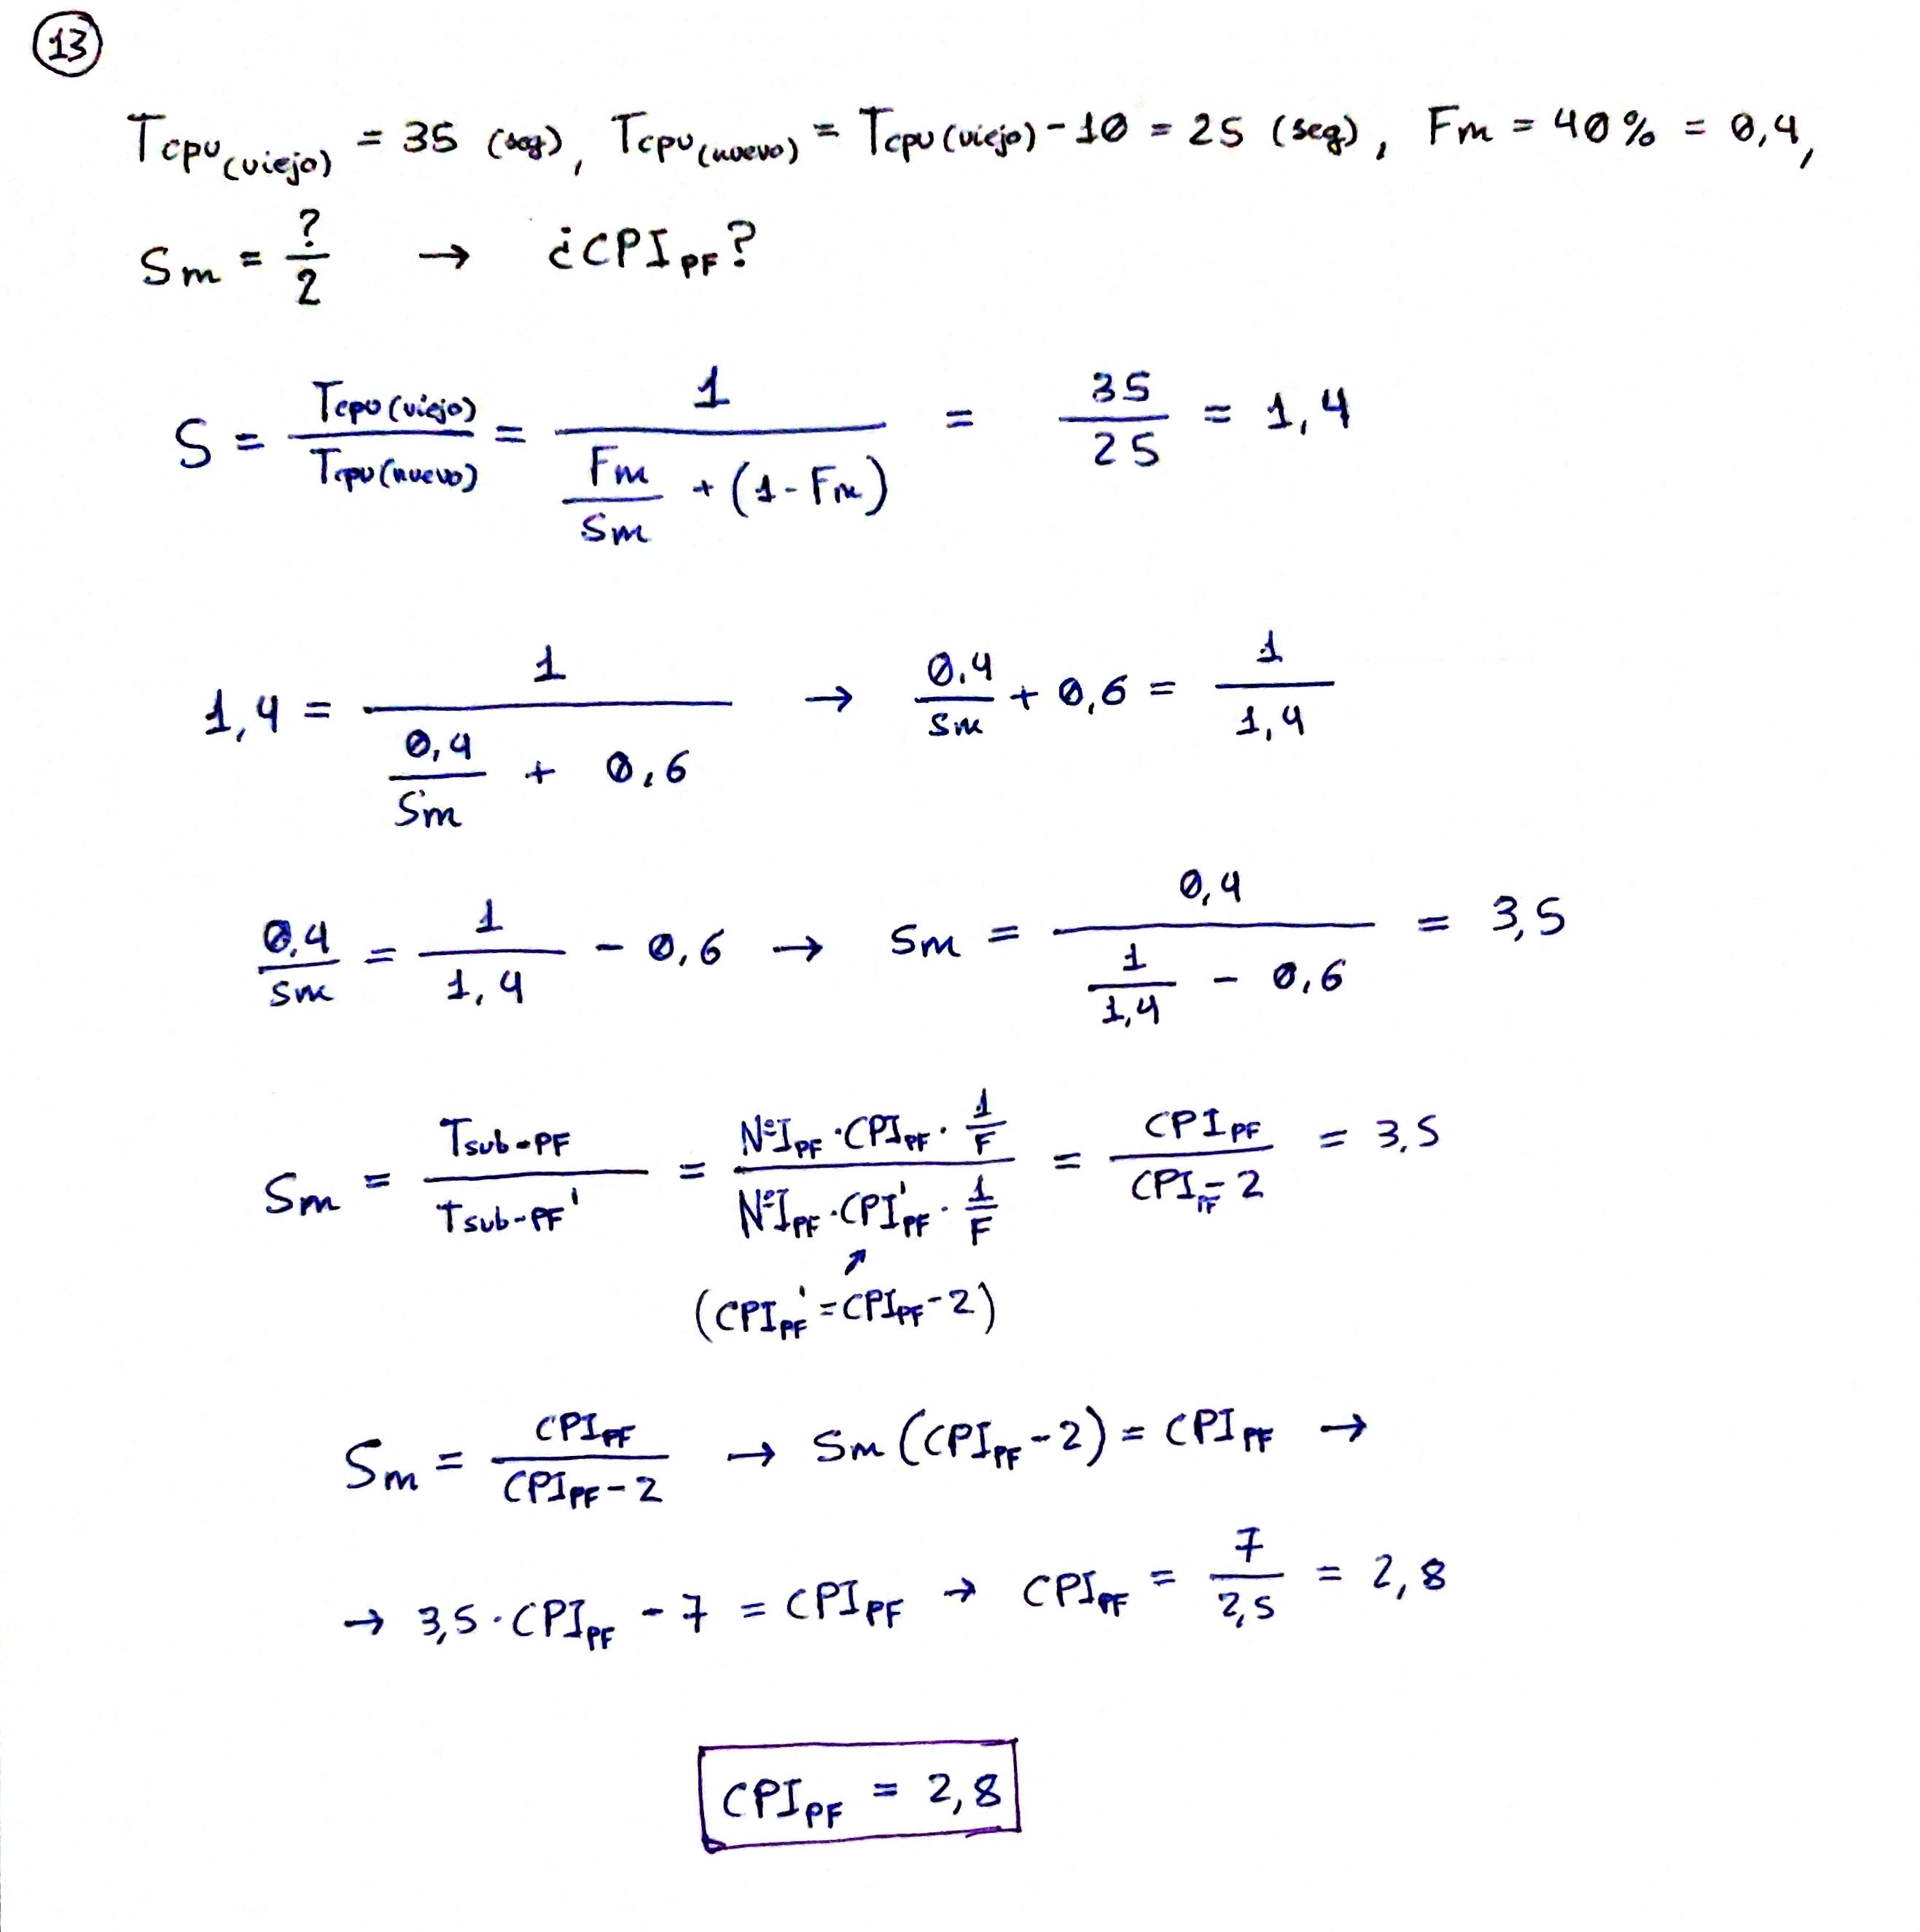 13
Tcpu(viejo) = 35 (seg), Tcpu(nuevo) = Tcpu(viejo) - 10 = 25 (seg), Fm = 40% = 0,4,
Sm = ?/2 → ¿CPI_PF?
S = Tcpu(viejo)/Tcpu(nuevo) = 1/(Fm/Sm + (1-Fm)) = 35/25 = 1,4
1,4 = 1/(0,4/Sm + 0,6) → 0,4/Sm + 0,6 = 1/1,4
0,4/Sm = 1/1,4 - 0,6 → Sm = 0,4/(1/1,4 - 0,6) = 3,5
Sm = Tsub-PF/Tsub-PF' = (NºI_PF · CPI_PF · 1/F)/(NºI_PF · CPI'_PF · 1/F) = CPI_PF/(CPI_PF - 2) = 3,5
(CPI_PF' = CPI_PF - 2)
Sm = CPI_PF/(CPI_PF - 2) → Sm (CPI_PF - 2) = CPI_PF →
→ 3,5 · CPI_PF - 7 = CPI_PF → CPI_PF = 7/2,5 = 2,8
CPI_PF = 2,8